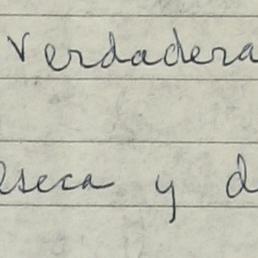 Verdadera
eseca y d